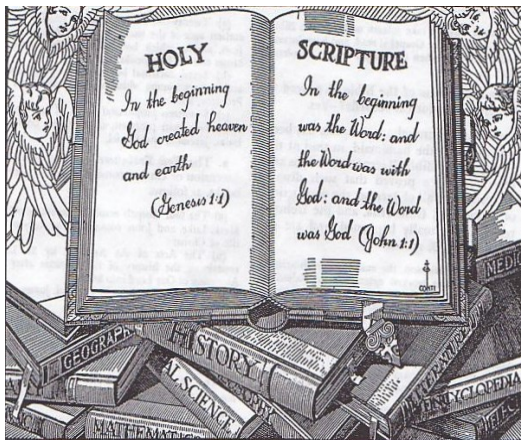 HOLY
In the beginning
God created heaven
and earth
(Genesis 1:1)
SCRIPTURE
In the beginning
was the Word: and
the Word was with
God: and the Word
was God (John 1:1)
CONTI
MEDIC
GEOGRAPH
HISTORY
AL SCIENCE
LITERATURE
ENCYCLOPEDIA
MATHEMATIC